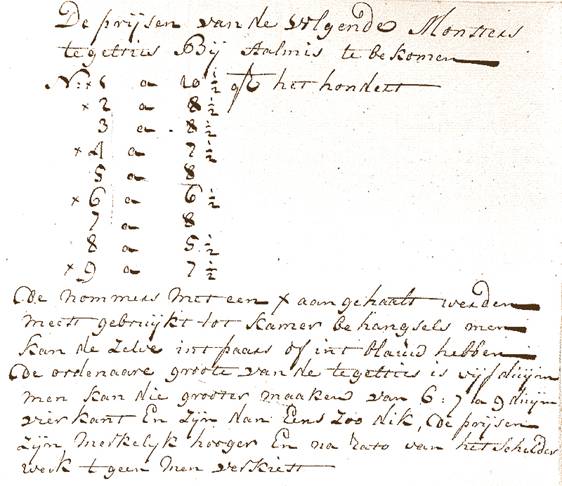 De prijsen van de volgende Monsters
tegelties Bij Aalmis te bekomen
N: x 1 a 10 ½ gl het hondert
x 2 a 8 ½
3 a 8 ½
x 4 a 7 ½
5 a 8
x 6 a 6 ½
7 a 8
8 a 5 ½
x 9 a 7 ½
De nommers Met een x aangehaalt werden
meest gebruijkt tot kamer behangsels men
kan de zelve int paars of int blauw hebben
De ordenaare groote van de tegelties is vijf duijm
men kan die grooter maaken van 6:7 a 9 duijm
vierkant En zijn dan Eens zoo dik, De prijsen
zijn merkelijk hooger En na rato van het schilder
werk t geen Men verkiest